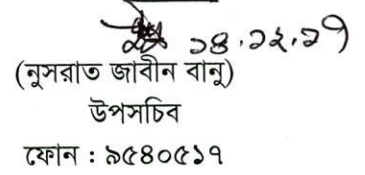 ১৪.১২.১৭
(নুসরাত জাবীন বানু)
উপসচিব
ফোন : ৯৫৪০৫১৭